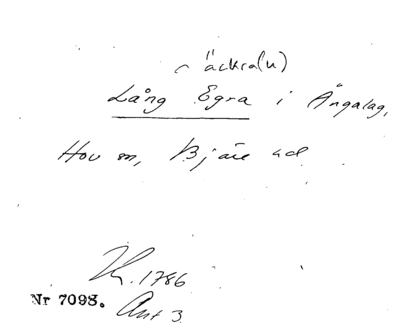 ~ äckra(n)
Lång Egra i Ängalag,
Hov sn, Bjäre hd
1786
Nr 7098.
Akt 3